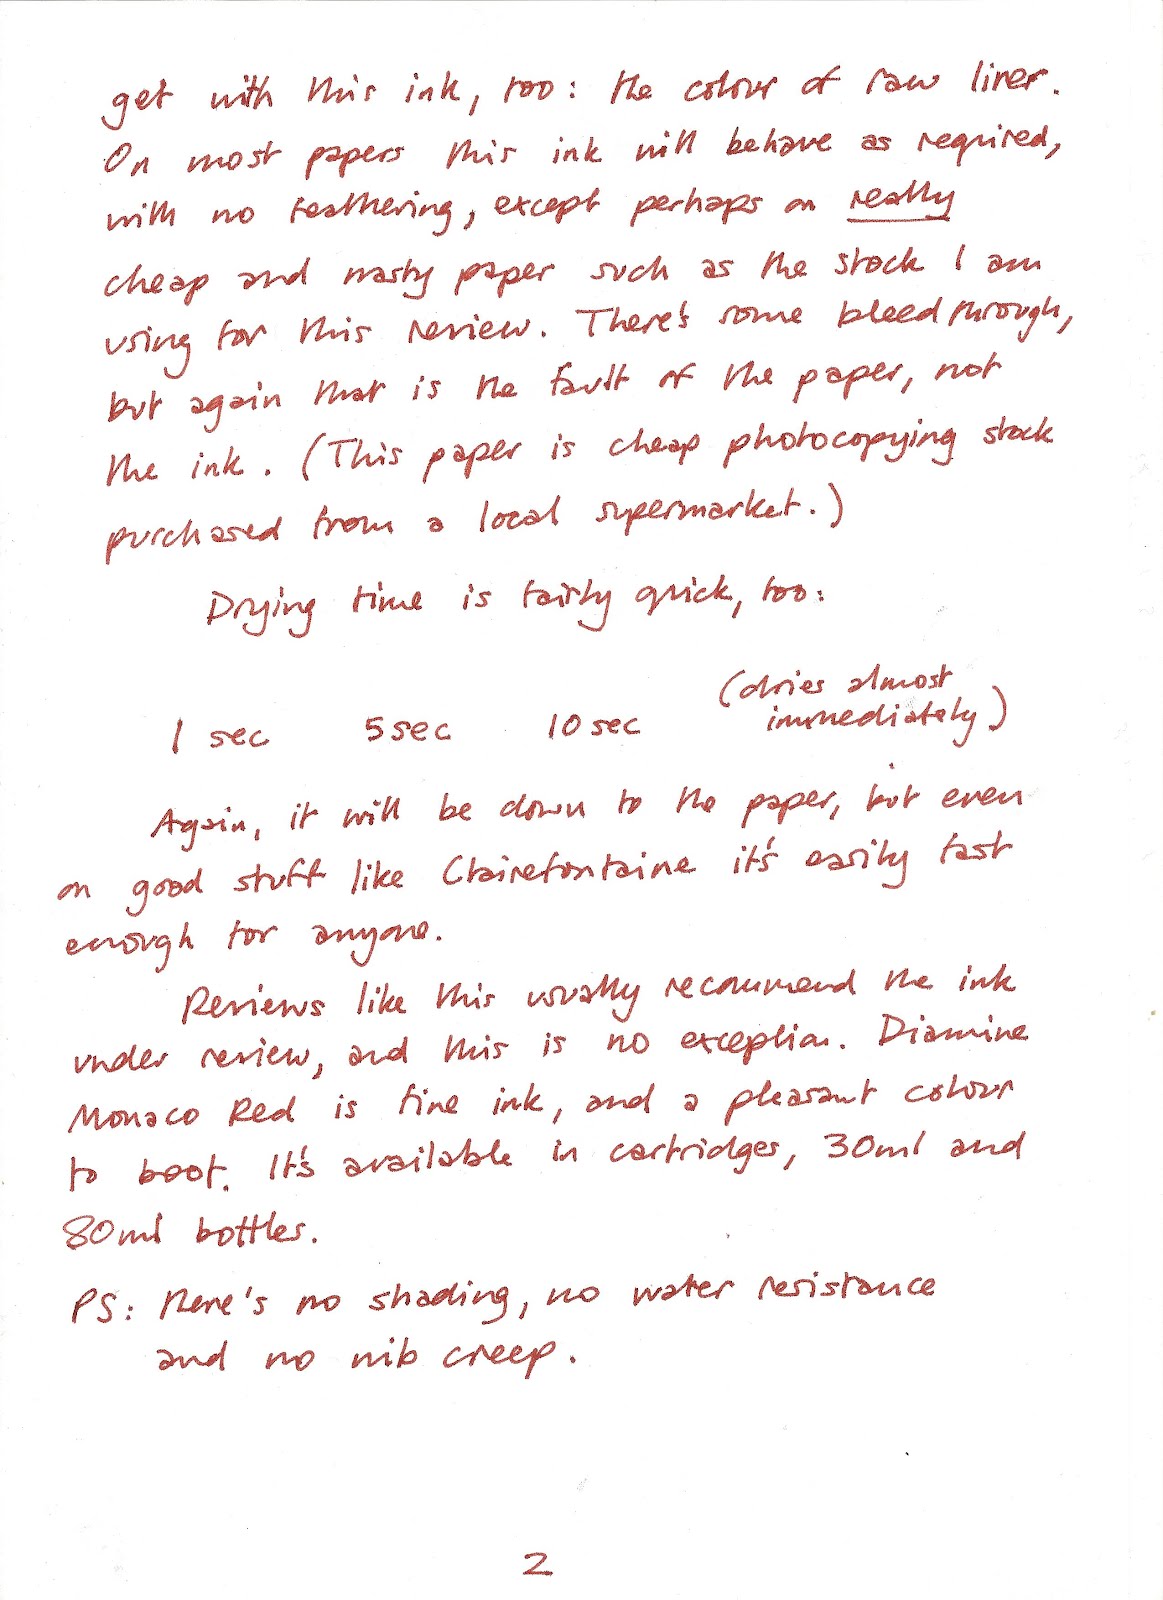 get with this ink, too: the colour of raw liver.
On most papers this ink will behave as required,
with no feathering, except perhaps on really
cheap and nasty paper such as the stock I am
using for this review. There's some bleedthrough,
but again that is the fault of the paper, not
the ink. (This paper is cheap photocopying stock
purchased from a local supermarket.)
Drying time is fairly quick, too:
1 sec 5 sec 10 sec (dries almost
immediately)
Again, it will be down to the paper, but even
on good stuff like Clairefontaine it's easily fast
enough for anyone.
Reviews like this usually recommend the ink
under review, and this is no exception. Diamine
Monaco Red is fine ink, and a pleasant colour
to boot. It's available in cartridges, 30ml and
80ml bottles.
PS: There's no shading, no water resistance
and no nib creep.
2